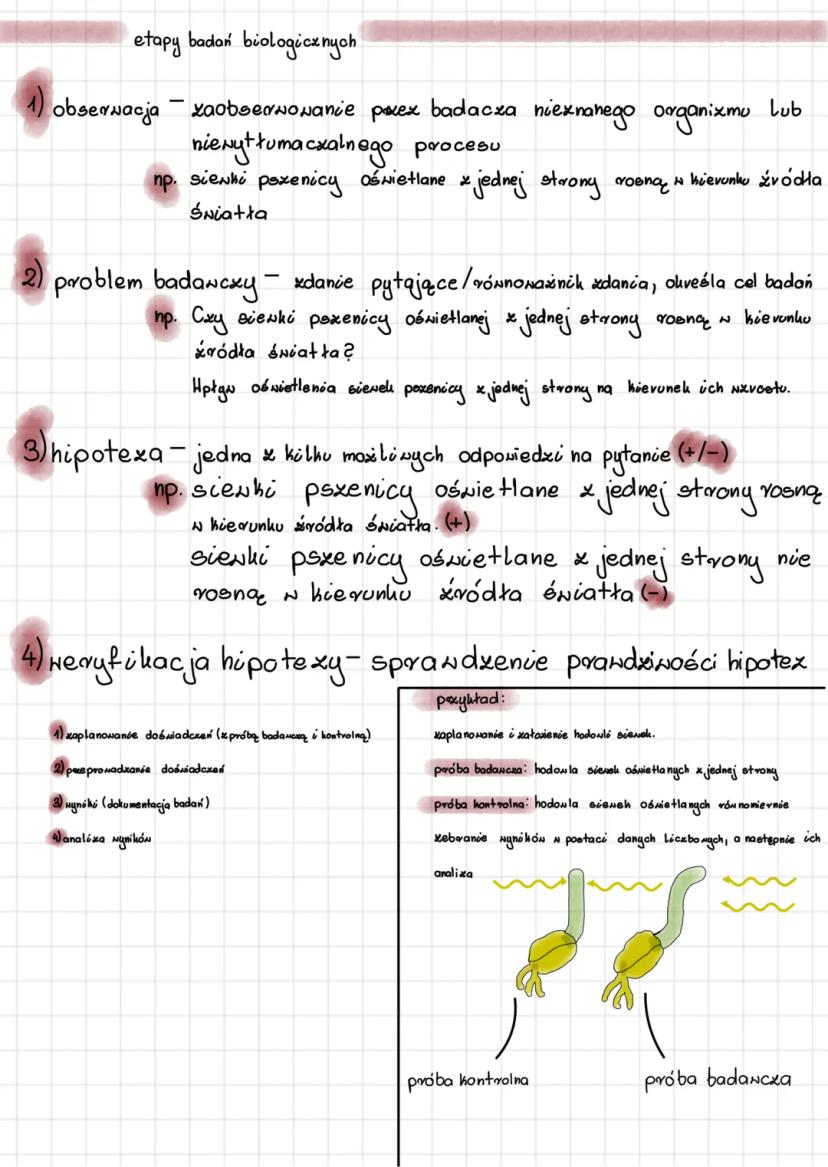 etapy badań biologicznych
1) obserwacja - zaobserwowanie przez badacza nieznanego organizmu lub
niewytłumaczalnego procesu
np. siewki pszenicy oświetlane z jednej strony rosną w kierunku źródła
światła
2) problem badawczy - zdanie pytające/równoważnik zdania, określa cel badań
np. Czy siewki pszenicy oświetlanej z jednej strony rosną w kierunku
źródła światła?
Wpływ oświetlenia siewek pszenicy z jednej strony na kierunek ich wzrostu.
3) hipoteza - jedna z kilku możliwych odpowiedzi na pytanie (+/-)
np. siewki pszenicy oświetlane z jednej strony rosną
w kierunku źródła światła. (+)
siewki pszenicy oświetlane z jednej strony nie
rosną w kierunku źródła światła (-)
4) weryfikacja hipotezy - sprawdzenie prawdziwości hipotez
1) zaplanowanie doświadczeń (z próbą badawczą i kontrolną)
2) przeprowadzanie doświadczeń
3) wyniki (dokumentacja badań)
4) analiza wyników
przykład:
zaplanowanie i założenie hodowli siewek.
próba badawcza: hodowla siewek oświetlanych z jednej strony
próba kontrolna: hodowla siewek oświetlanych równomiernie
zebranie wyników w postaci danych liczbowych, a następnie ich
analiza
próba kontrolna
próba badawcza